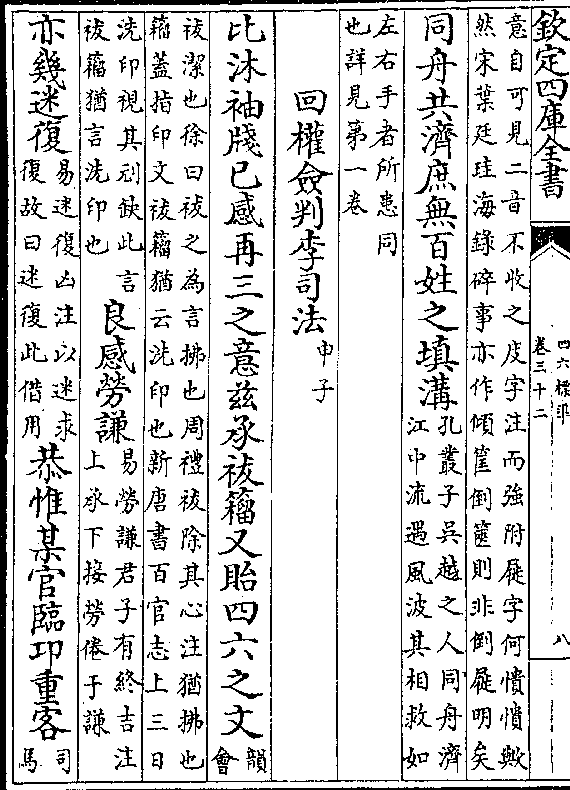 欽定四庫全書
四六標準
卷三十二
八
意自可見二音不收之皮字注而強附屣字何憒憒歟
然宋葉廷珪海錄碎事亦作傾筐倒篋則非倒屣明矣
同舟共濟庶無百姓之填溝
孔叢子吳越之人同舟濟
江中流遇風波其相救如
左右手者所患同
也詳見第一卷
回權僉判李司法
申子
比沐袖牋已感再三之意兹承祓籕又貽四六之文
韻
會
祓潔也徐曰祓之為言拂也周禮祓除其心注猶拂也
籕蓋指印文祓籕猶云洗印也新唐書百官志上三日
洗印視其刓缺此言
祓籕猶言洗印也
良感勞謙
易勞謙君子有終吉注
上承下接勞倦于謙
亦幾迷復
易迷復凶注以迷求
復故曰迷復此借用
恭惟某官臨卭重客
司
馬